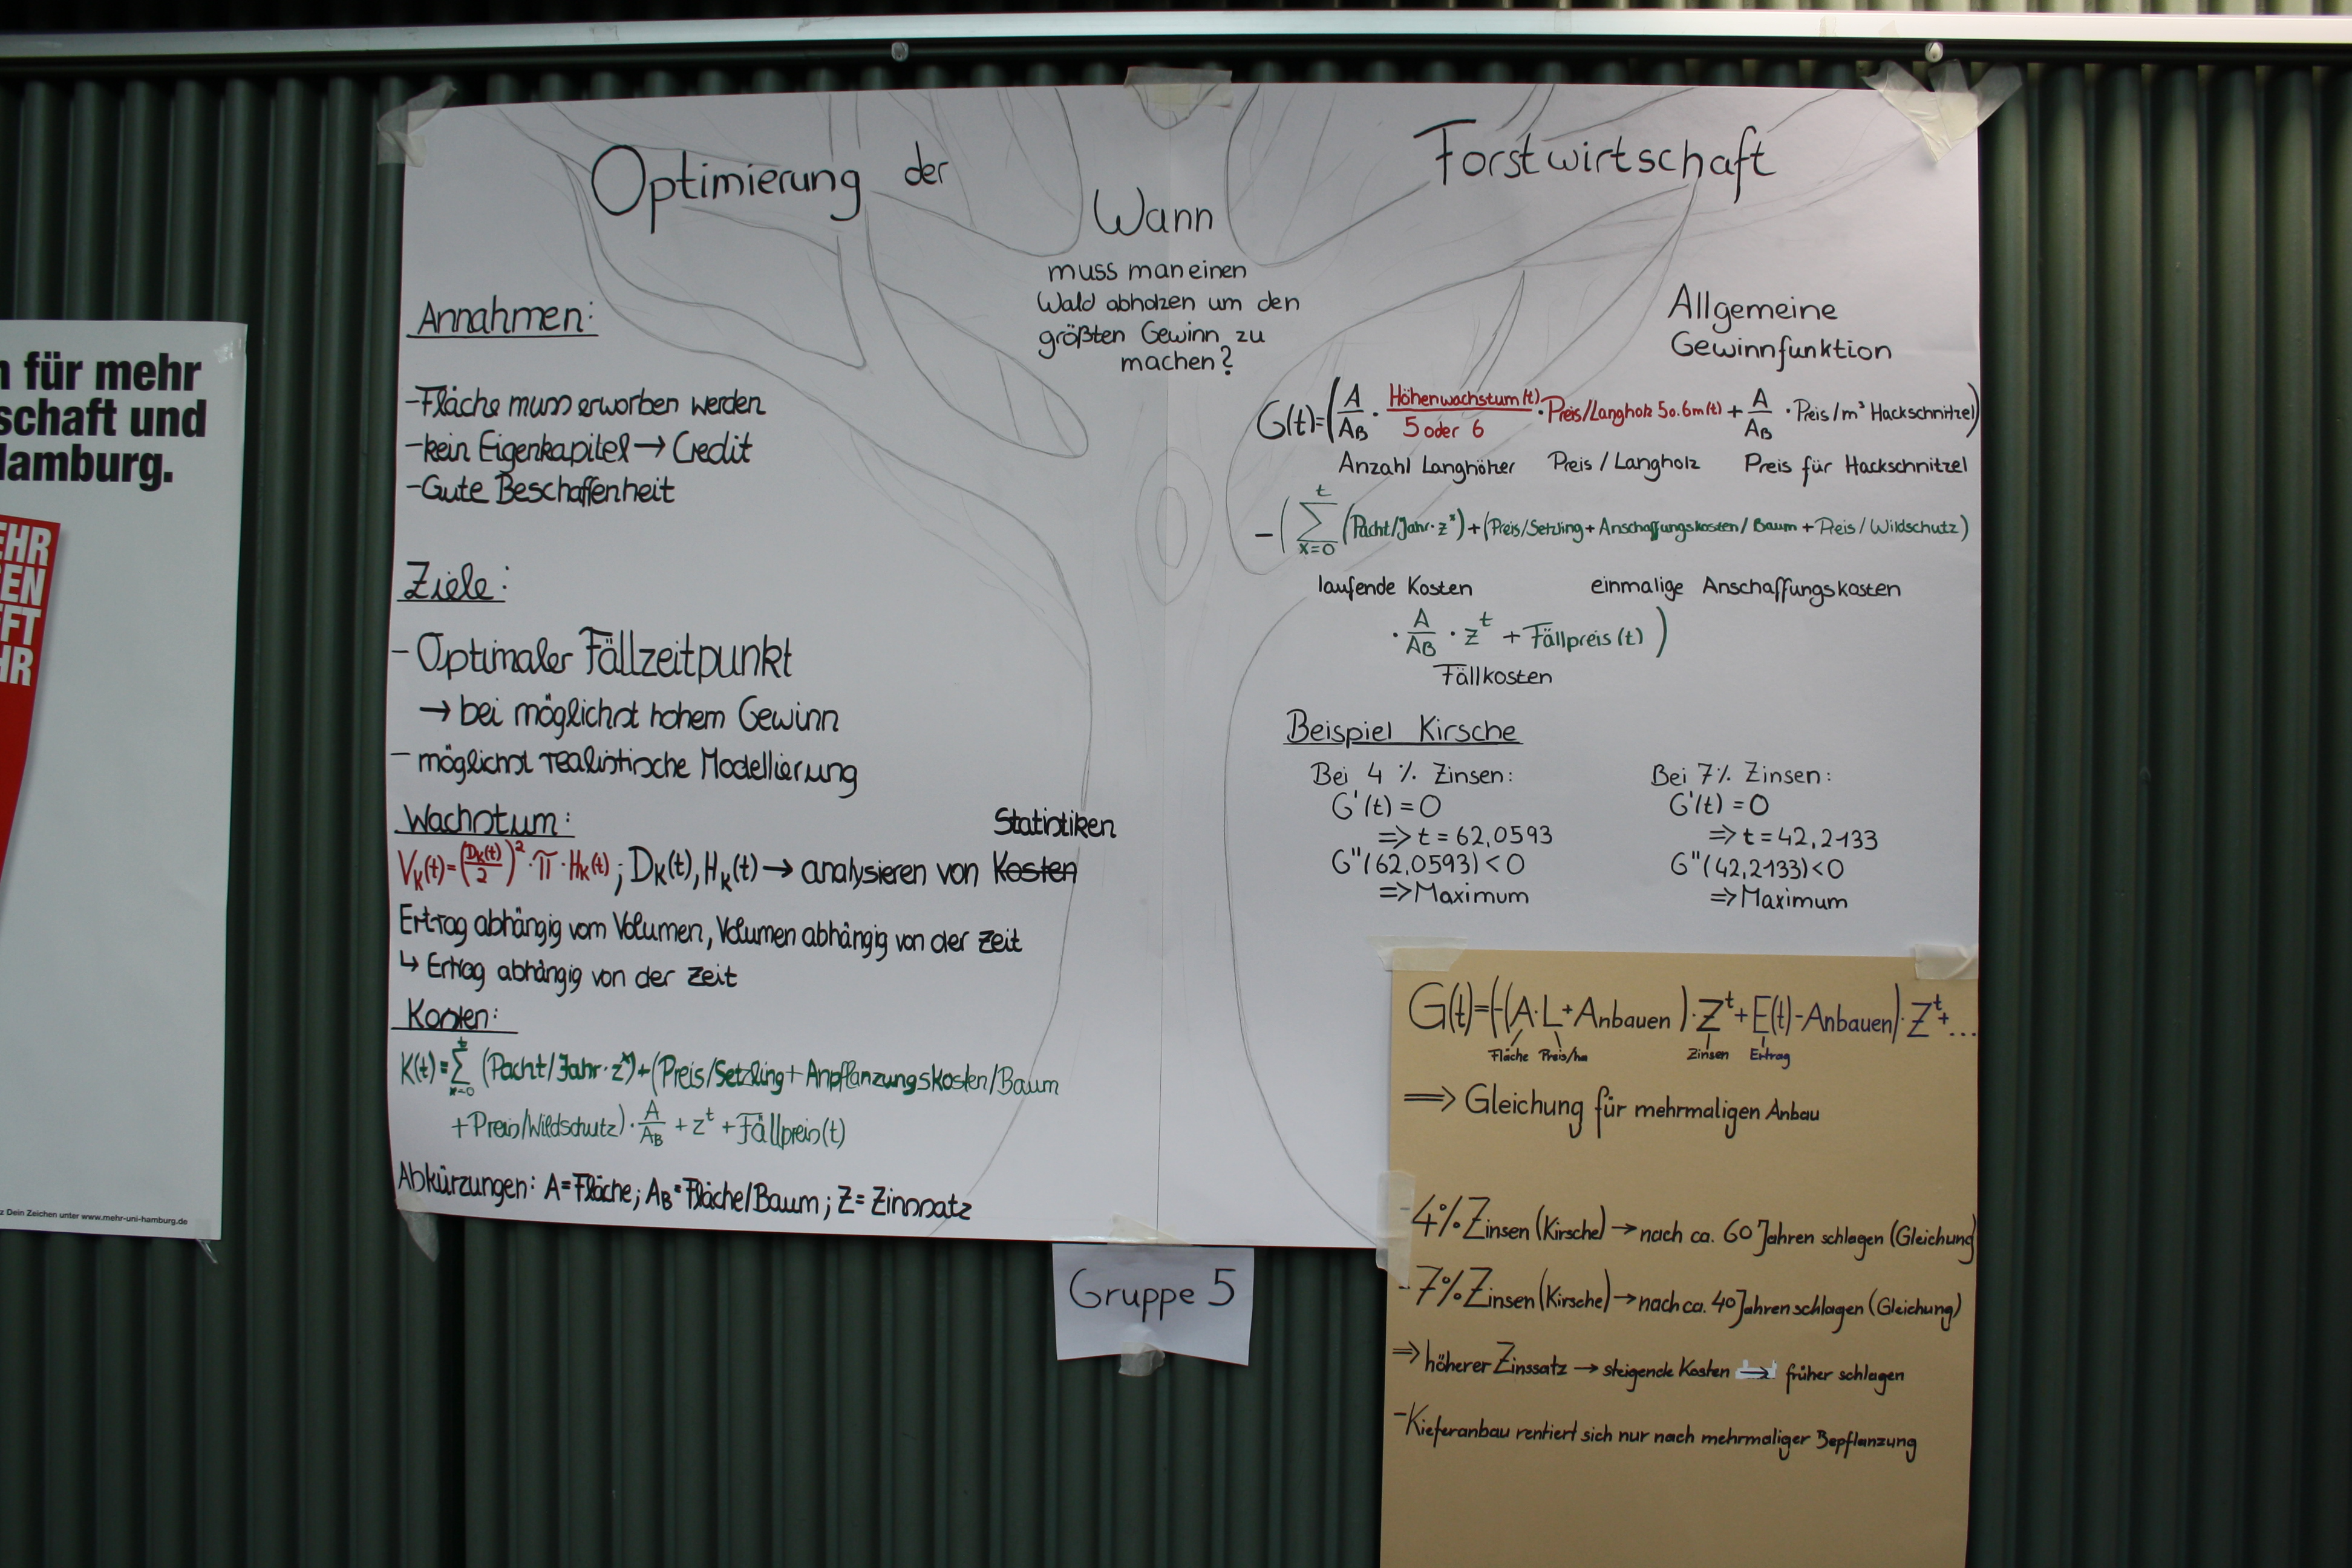 n für mehr
schaft und
Hamburg.
EHR
EN
FT
HR
z Dein Zeichen unter www.mehr-uni-hamburg.de
Optimierung der Forstwirtschaft
Wann
muss man einen
Wald abholzen um den
größten Gewinn zu
machen?
Annahmen:
-Fläche muss erworben werden
-kein Eigenkapitel → Credit
-Gute Beschaffenheit
Ziele:
- Optimaler Fällzeitpunkt
→ bei möglichst hohem Gewinn
- möglichst realistische Modellierung
Wachstum:
Statistiken
V_K(t)=(D_K(t)/2)²·π·H_K(t); D_K(t), H_K(t) → analysieren von Kosten
Ertrag abhängig vom Volumen, Volumen abhängig von der Zeit
↳ Ertrag abhängig von der Zeit
Kosten:
K(t)=Σ_{x=0}^{t} (Pacht/Jahr·z^x)+(Preis/Setzling+Anpflanzungskosten/Baum
+Preis/Wildschutz)·A/A_B + z^t + Fällpreis(t)
Abkürzungen: A=Fläche; A_B=Fläche/Baum; Z=Zinssatz
Allgemeine
Gewinnfunktion
G(t)=(A/A_B · Höhenwachstum(t)/5 oder 6 · Preis/Langholz 5o.6m(t) + A/A_B · Preis/m³ Hackschnitzel)
Anzahl Langhölzer Preis/Langholz Preis für Hackschnitzel
-(Σ_{x=0}^{t} (Pacht/Jahr·z^x)+(Preis/Setzling+Anschaffungskosten/Baum+Preis/Wildschutz)
laufende Kosten einmalige Anschaffungskosten
· A/A_B · z^t + Fällpreis(t))
Fällkosten
Beispiel Kirsche
Bei 4 % Zinsen:
G'(t)=0
=> t=62,0593
G''(62,0593)<0
=> Maximum
Bei 7% Zinsen:
G'(t)=0
=> t=42,2133
G''(42,2133)<0
=> Maximum
G(t)=(-(A·L+Anbauen)·Z^t+E(t)-Anbauen)·Z^t+...
Fläche Preis/ha Zinsen Ertrag
⟹ Gleichung für mehrmaligen Anbau
-4% Zinsen (Kirsche) → nach ca. 60 Jahren schlagen (Gleichung)
-7% Zinsen (Kirsche) → nach ca. 40 Jahren schlagen (Gleichung)
⇒ höherer Zinssatz → steigende Kosten → früher schlagen
-Kieferanbau rentiert sich nur nach mehrmaliger Bepflanzung
Gruppe 5